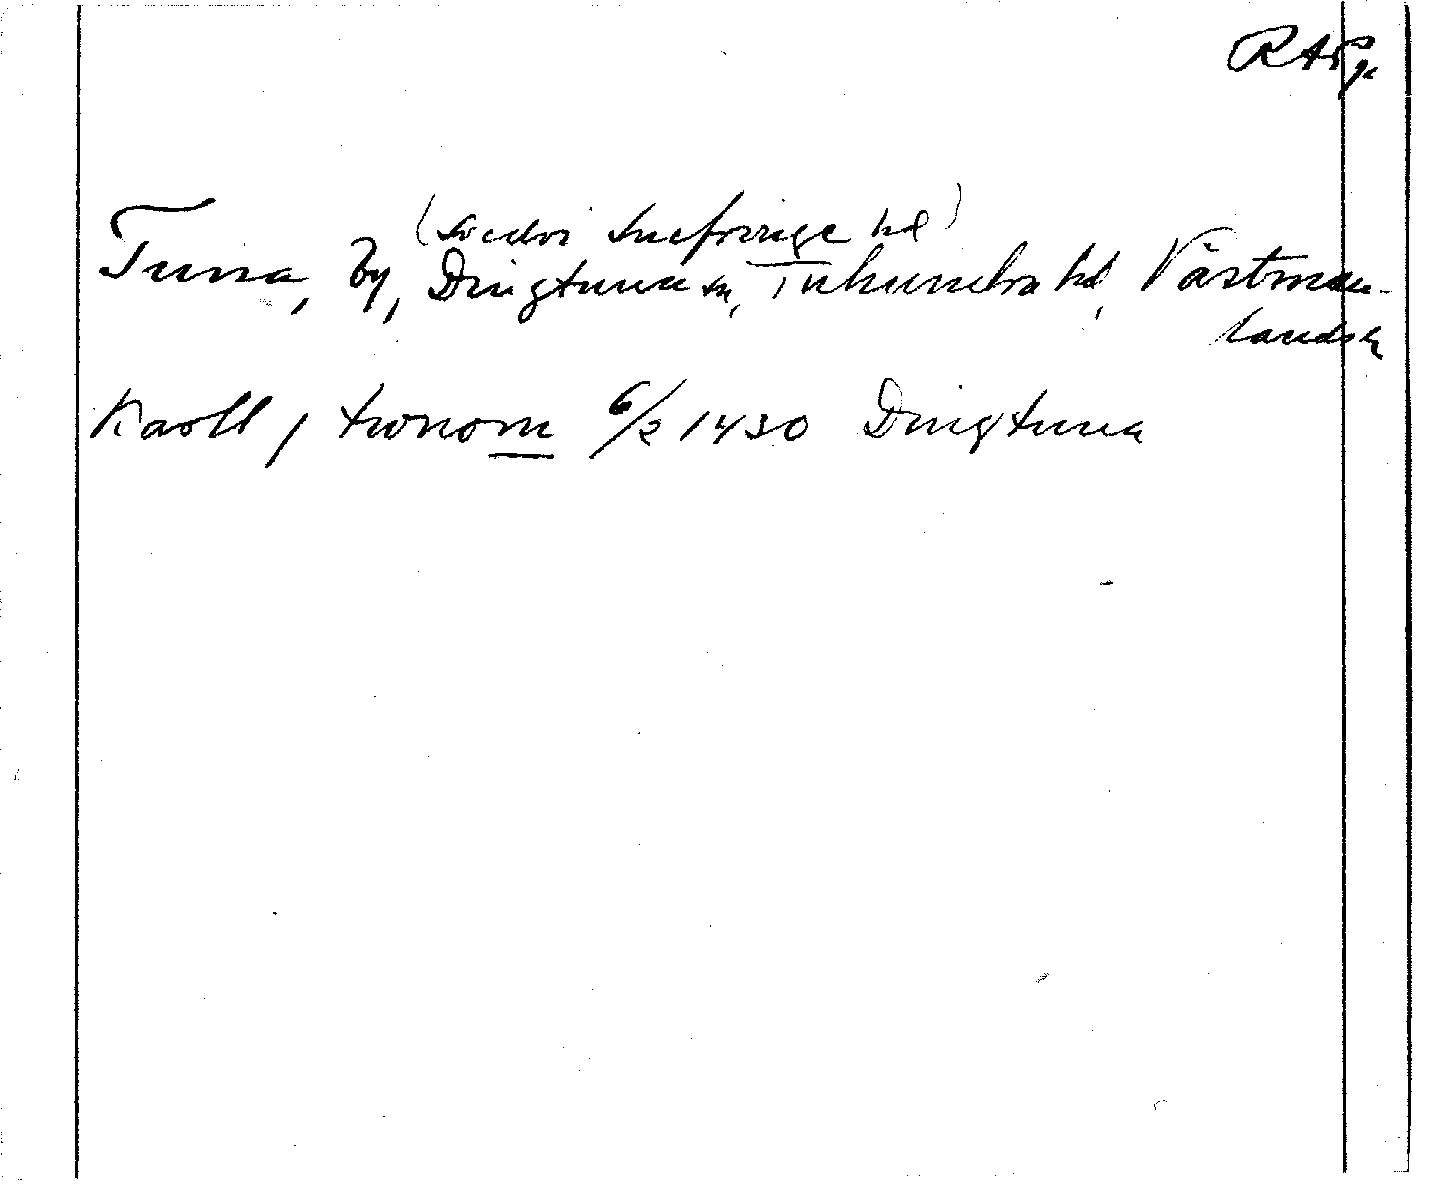 RAp.
(Svedvi Snefringe hd)
Tuna, by, Dingtuna sn, Tuhundra hd, Västman-
lands l
Karll / tronom 6/2 1430 Dingtuna